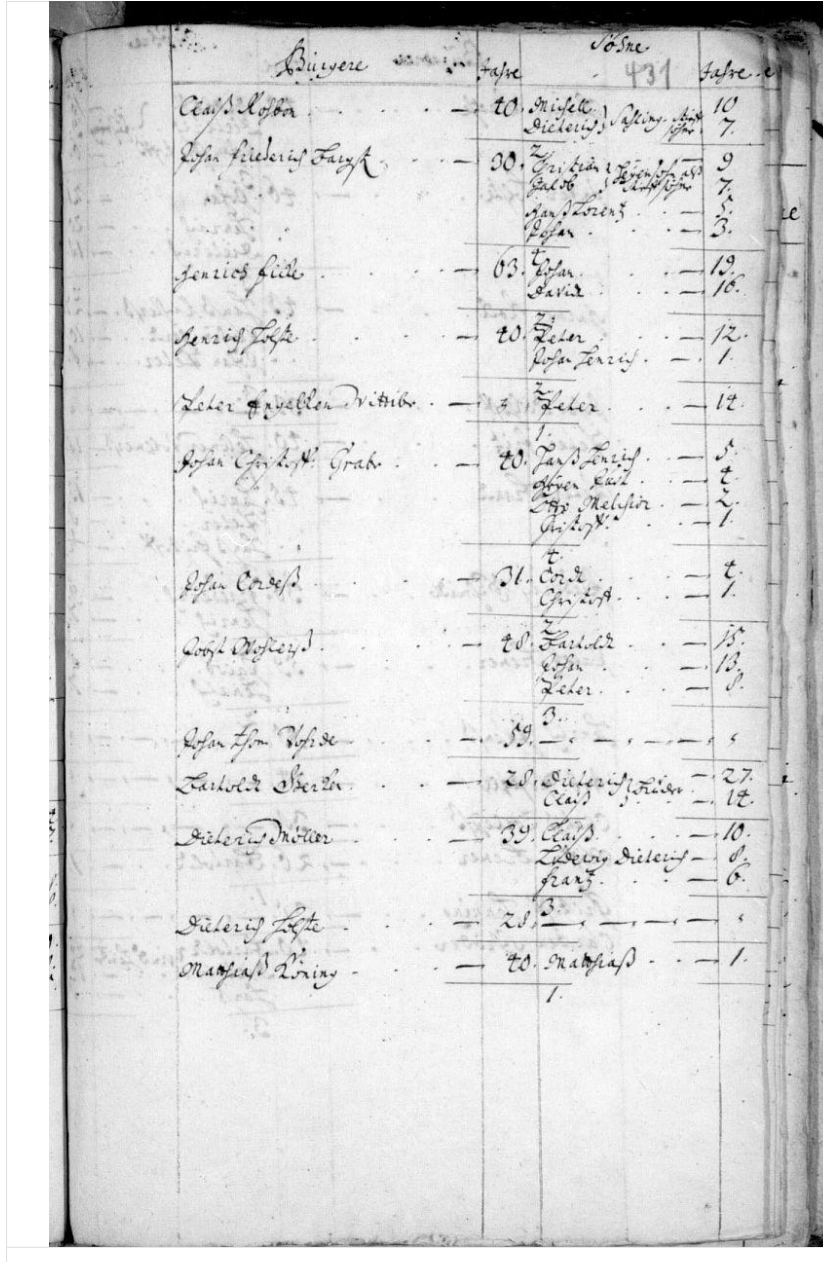 Bürgere Jahre Söhne Jahre
431
Clauß 40. Michell 10
Dieterich Sahling Stieff söhne 7.
2.
Johan Friederich Bargst 30. Christian 9
Jacob Stieffsöhne 7.
Hanß Lorentz 5.
Johan 3.
4.
Henrich Ficke 63. Johan 19.
David 16.
2.
Henrich Holste 40. Peter 12.
Johan Henrich 1.
2.
Peter Engelken Wittibe Peter 14
1.
Johan Christoff Grabe 40. Hanß Henrich 5.
Jürgen 4.
Otto Melchior 2.
Christoff 1.
4.
Johan Cordeß 31. Cordt 4.
Christoff 1.
2.
Jobst Wohlerß 48. Bartoldt 15.
Johan 13.
Peter 8.
3.
Johan thom Vohrde 59.
Bartoldt 28. Dieterich Brüder 27.
Clauß 14.
Dieterich Möller 39. Clauß 10.
Ludewig Dieterich 8.
Frantz 6.
3.
Dieterich Holste 28.
Matthiaß Köning 40. Matthiaß 1.
1.